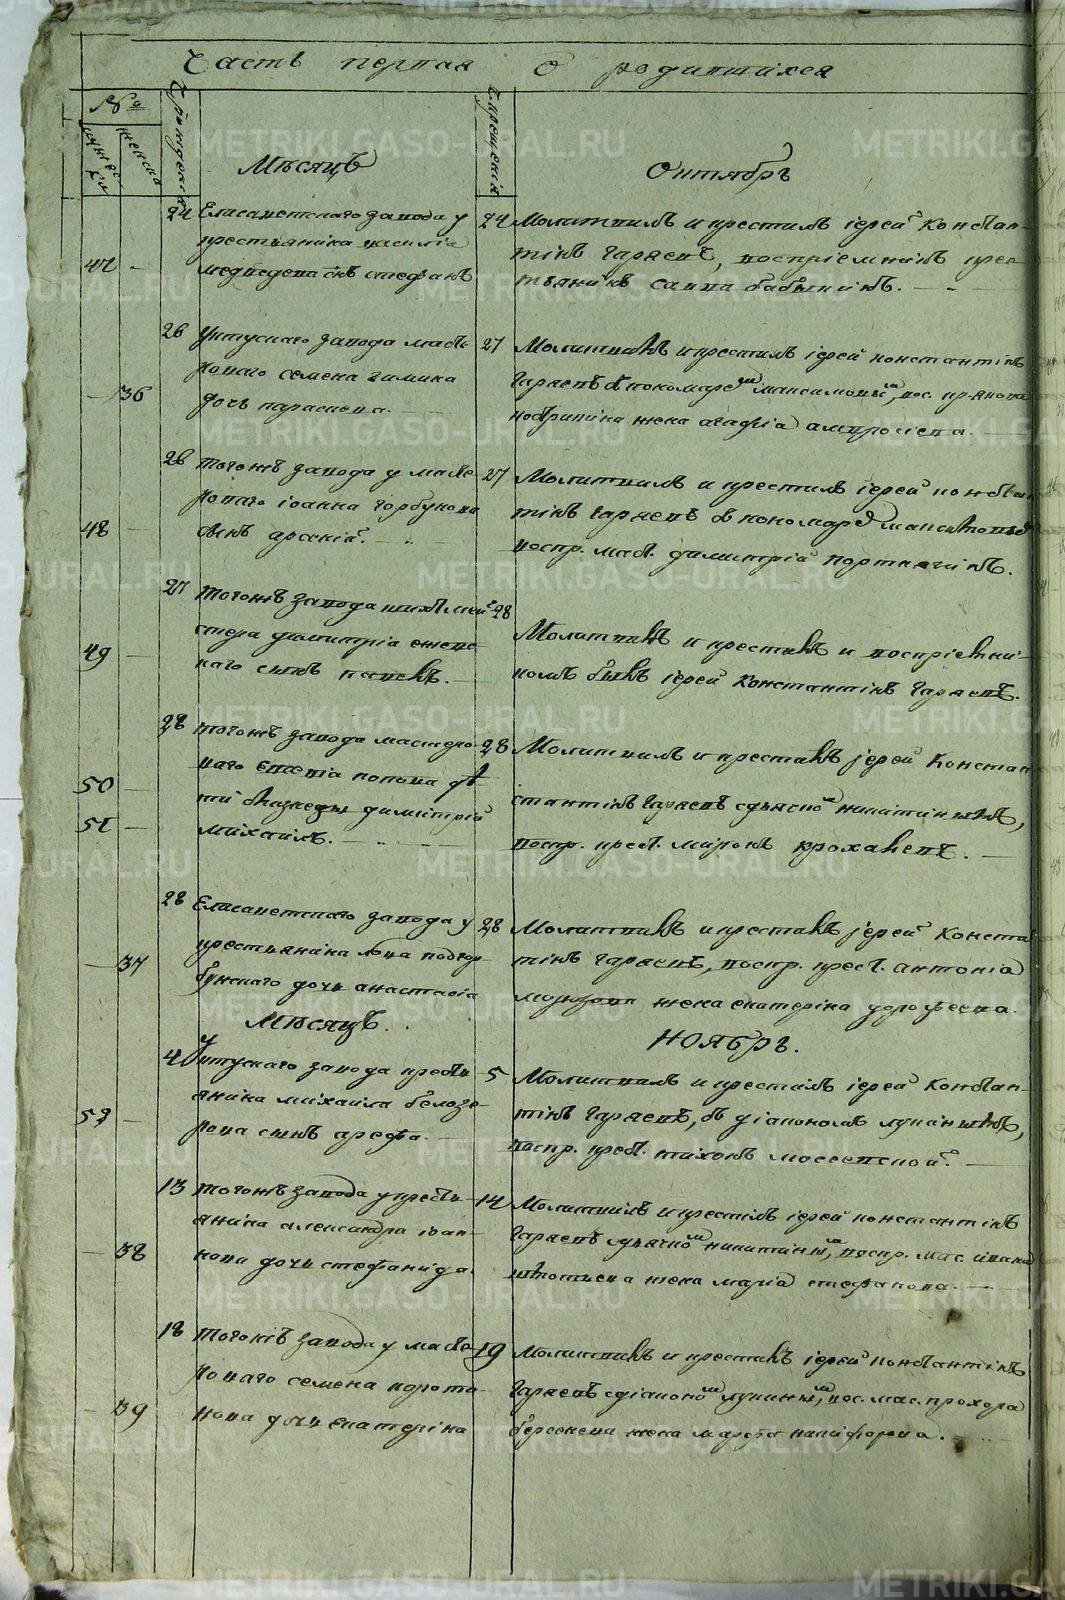 Часть первая о родившихся
№
мужеска
женска
рождения
крещения
Мѣсяцъ
Октябрь
24 Елисаветскаго завода у
крестьянина василіа
47 - медведева сынъ стефанъ
24 Молитвилъ и крестилъ іерей Констан-
тінъ Гаряевъ, воспріемникъ крес-
тьянинъ савва бабыкинъ.
26 Уктускаго завода масте-
роваго семена галкина
- 36 дочь параскева.
27 Молитвилъ и крестилъ іерей константінъ
Гаряевъ
жена агафіа амвросіева.
26 тогожъ завода у масте-
роваго іоанна горбунова
48 - сынъ арсеній.
27 Молитвилъ и крестилъ іерей констан
тінъ гаряевъ съ пономаремъ
воспр. маст. димитрій портнягинъ.
27 тогожъ завода шихтмей-
стера димитріа
49 - наго сынъ павелъ.
28
Молитвилъ и крестилъ и воспріемни-
комъ былъ іерей Константінъ Гаряевъ.
28 тогожъ завода мастеро-
ваго попова дѣ
50 - ти близнецы димітрій
51 - михаилъ.
28 Молитвилъ и крестилъ іерей Констан
стантінъ Гаряевъ съ дьячкомъ никитинымъ,
воспр. крест. міронъ крохалевъ.
28 Елисаветскаго завода у
крестьянина льва подкор-
- 37 бунскаго дочь анастасіа
28 Молитвилъ и крестилъ іерей Конста
тінъ гаряевъ, воспр. крест. антоніа
жена екатеріна дорофеева.
Мѣсяцъ.
НОЯБРЬ.
4 Уктускаго завода кресть-
янина михаила белозе-
52 - рова сынъ арефа.
5 Молитвилъ и крестилъ іерей Констан-
тінъ Гаряевъ, съ діакономъ лукинымъ,
воспр. крест. тихонъ
13 тогожъ завода у кресть-
янина александра іван-
- 38 нова дочь стефанида.
14 Молитвилъ и крестилъ іерей константінъ
Гаряевъ съ дьячкомъ никитинымъ, воспр. мас. ивана
жена маріа стефанова.
18 тогожъ завода у масте-
роваго семена корота-
- 39 нова дочь екатеріна
19 Молитвилъ и крестилъ іерей константінъ
Гаряевъ съ діакономъ лукинымъ, вос. мас. прохора
берсенева жена марфа никифорова.